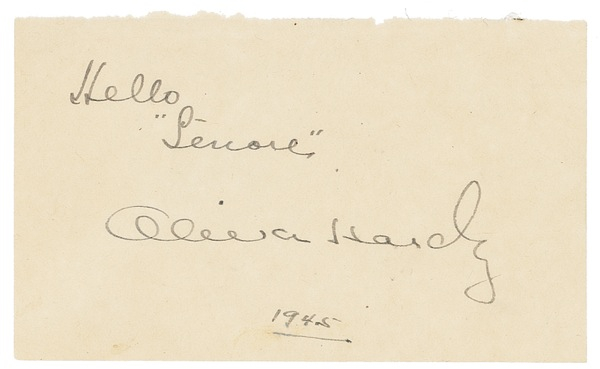 Hello
"Lenore"
Oliver Hardy
1945